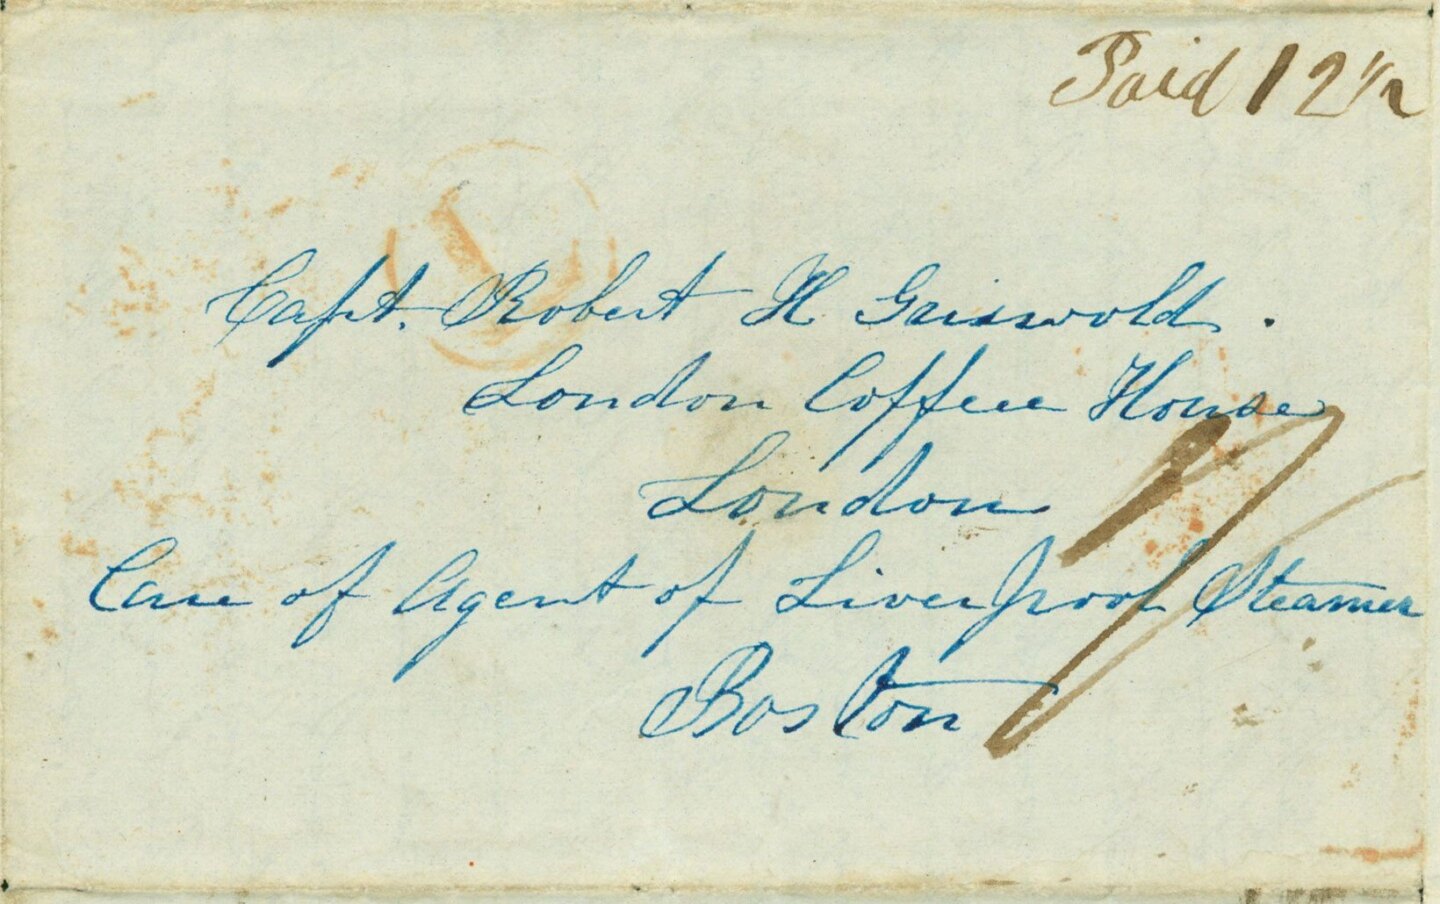 Paid 12 1/2
L
Capt. Robert H Griswold.
London Coffee House
London
Care of Agent of Liverpool Steamer
Boston